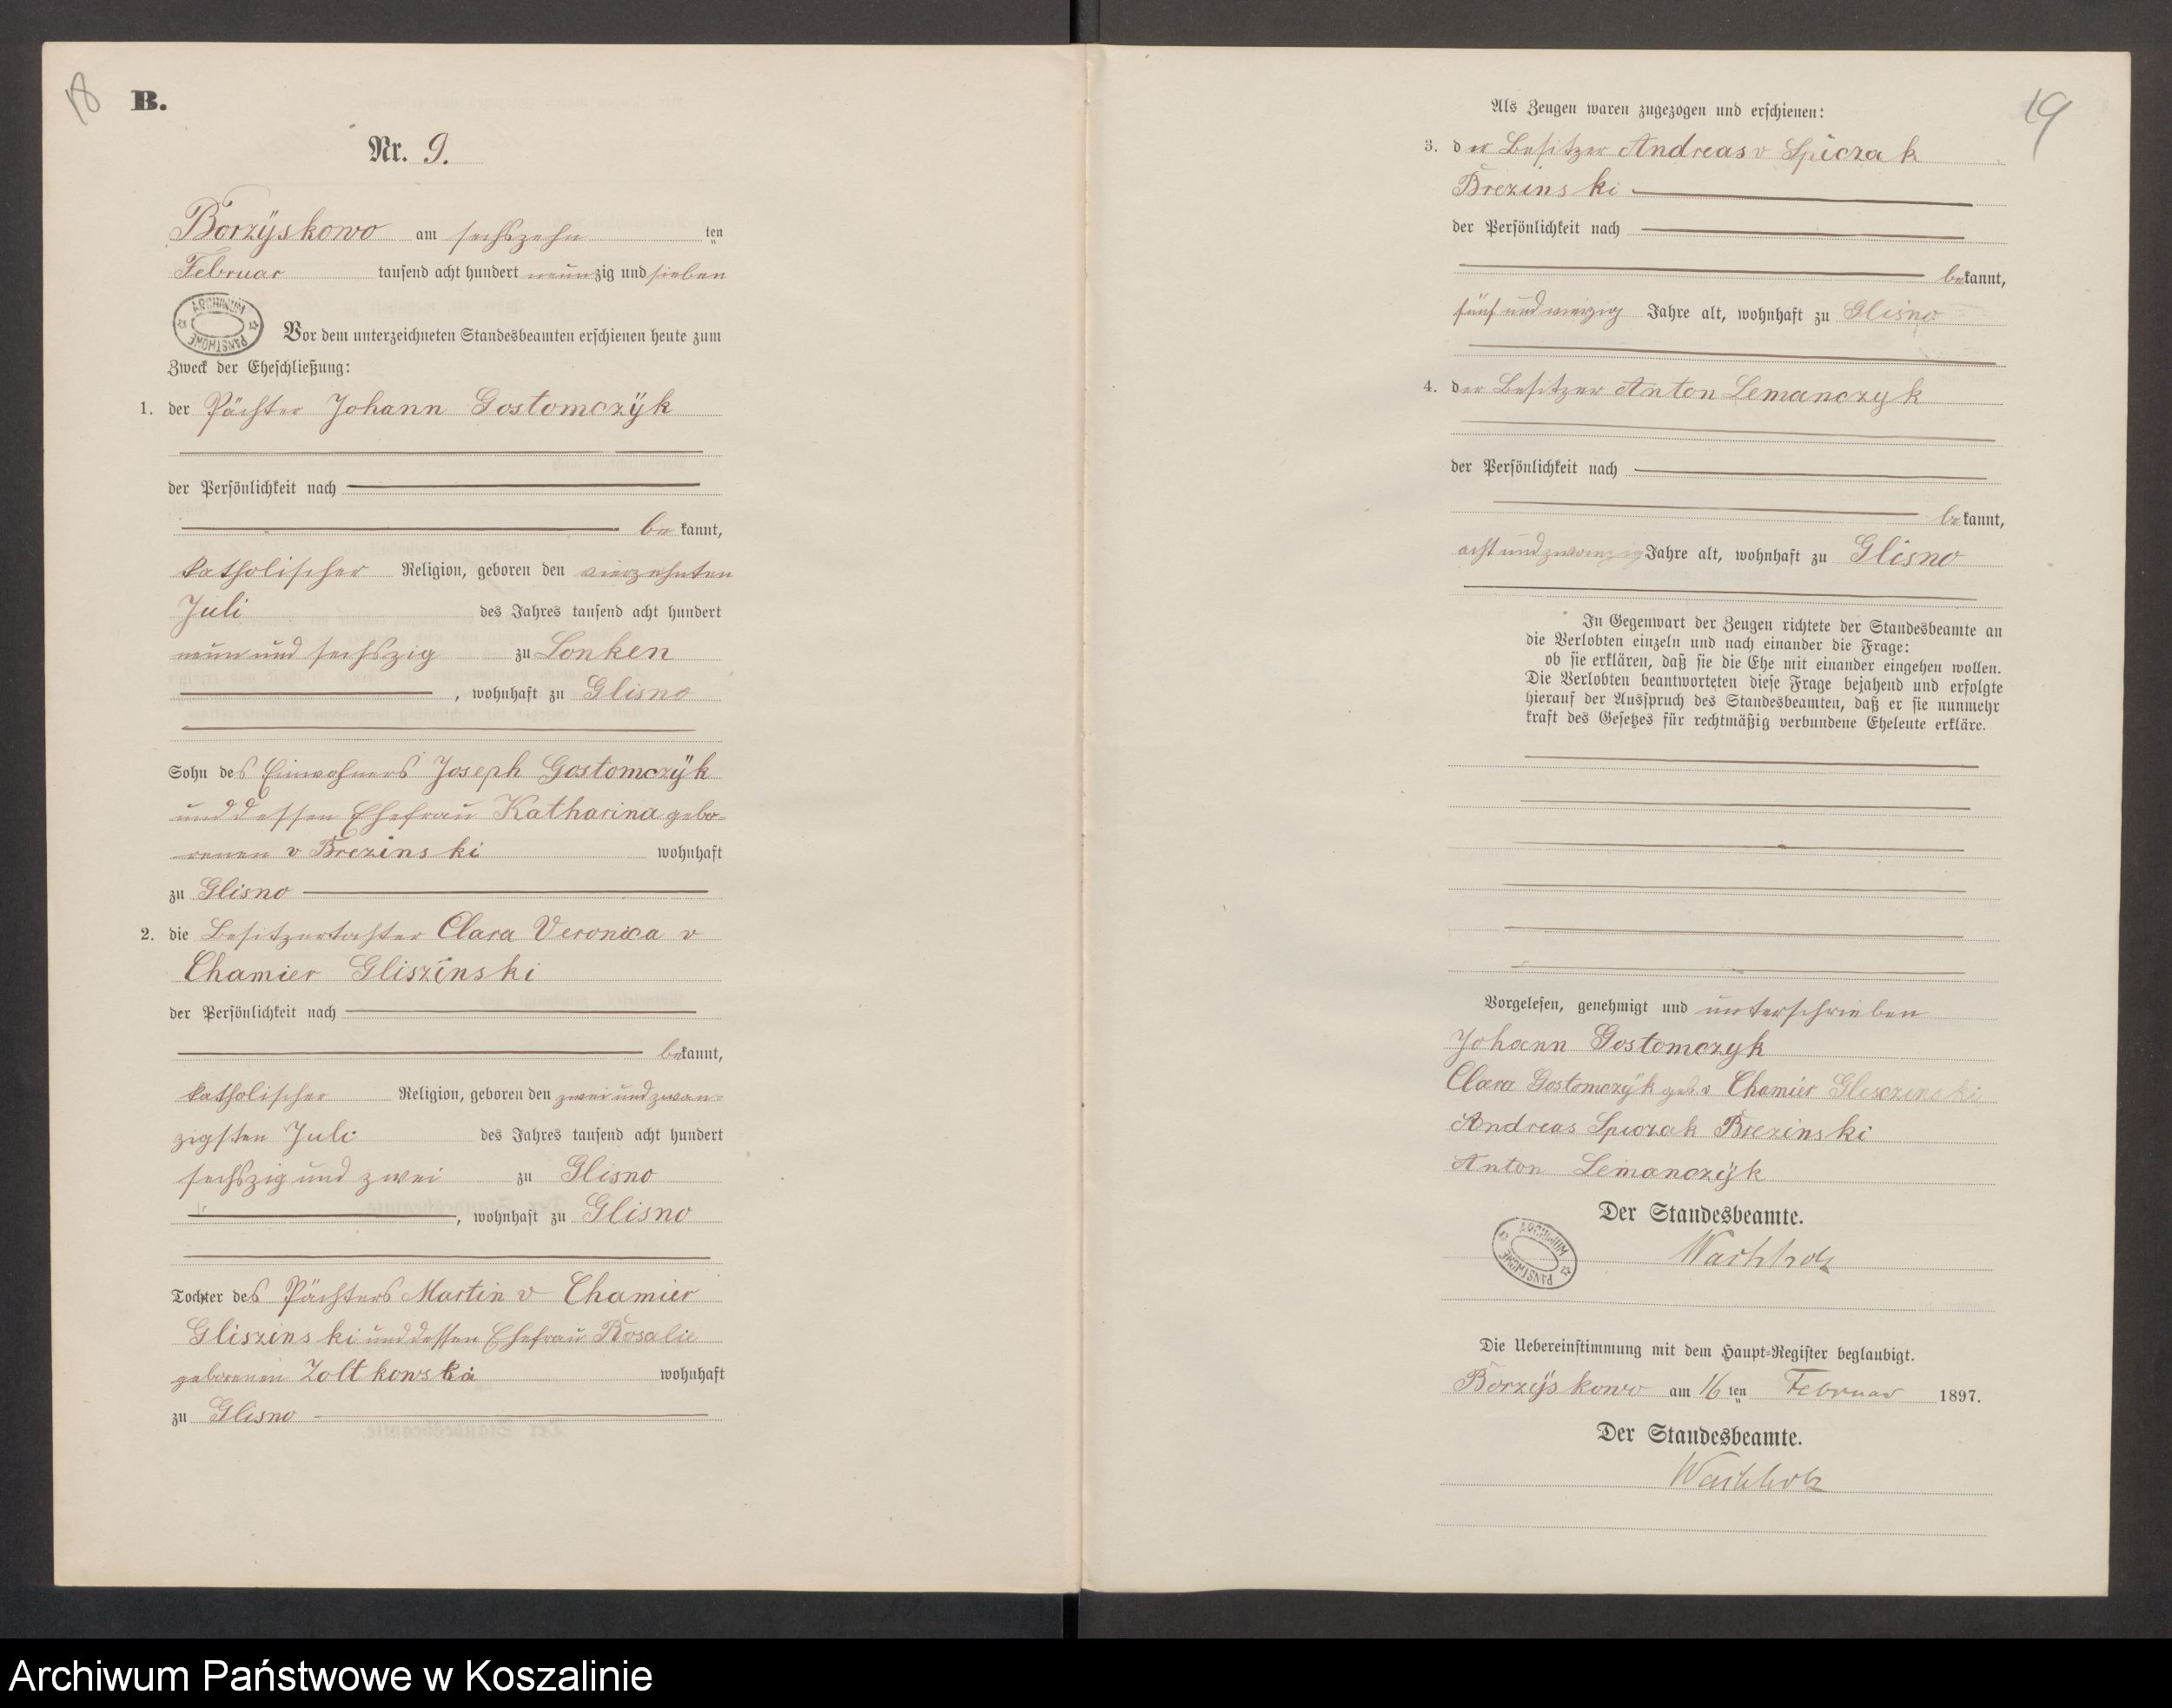 18
B.
Nr. 9.
Borzÿskowo am sechszehn ten
Februar tausend acht hundert neunzig und sieben
ARCHIWUM PAŃSTWOWE
Vor dem unterzeichneten Standesbeamten erschienen heute zum
Zweck der Eheschließung:
1. der Pächter Johann Gostomczÿk
der Persönlichkeit nach
bekannt,
katholischer Religion, geboren den vierzehnten
Juli des Jahres tausend acht hundert
neun und sechszig zu Lonken
, wohnhaft zu Glisno
Sohn des Einwohners Joseph Gostomczÿk
und dessen Ehefrau Katharina gebo-
renen v Brezinski wohnhaft
zu Glisno
2. die Besitzertochter Clara Veronica v
Chamier Gliszinski
der Persönlichkeit nach
bekannt,
katholischer Religion, geboren den zwei und zwan-
zigsten Juli des Jahres tausend acht hundert
sechszig und zwei zu Glisno
, wohnhaft zu Glisno
Tochter des Pächters Martin v Chamier
Gliszinski und dessen Ehefrau Rosalie
geborenen Zoltkowska wohnhaft
zu Glisno
19
Als Zeugen waren zugezogen und erschienen:
3. der Besitzer Andreas v Spiczak
Brezinski
der Persönlichkeit nach
bekannt,
fünf und vierzig Jahre alt, wohnhaft zu Glisno
4. der Besitzer Anton Lemanczyk
der Persönlichkeit nach
bekannt,
acht und zwanzig Jahre alt, wohnhaft zu Glisno
In Gegenwart der Zeugen richtete der Standesbeamte an
die Verlobten einzeln und nach einander die Frage:
ob sie erklären, daß sie die Ehe mit einander eingehen wollen.
Die Verlobten beantworteten diese Frage bejahend und erfolgte
hierauf der Ausspruch des Standesbeamten, daß er sie nunmehr
kraft des Gesetzes für rechtmäßig verbundene Eheleute erkläre.
Vorgelesen, genehmigt und unterschrieben
Johann Gostomczyk
Clara Gostomczÿk geb. v Chamier Glisczinski
Andreas Spiczak Brezinski
Anton Lemanczÿk
Der Standesbeamte.
ARCHIWUM PAŃSTWOWE
Wachholz
Die Uebereinstimmung mit dem Haupt-Register beglaubigt.
Borzÿskowo am 16 ten Februar 1897.
Der Standesbeamte.
Wachholz
Archiwum Państwowe w Koszalinie